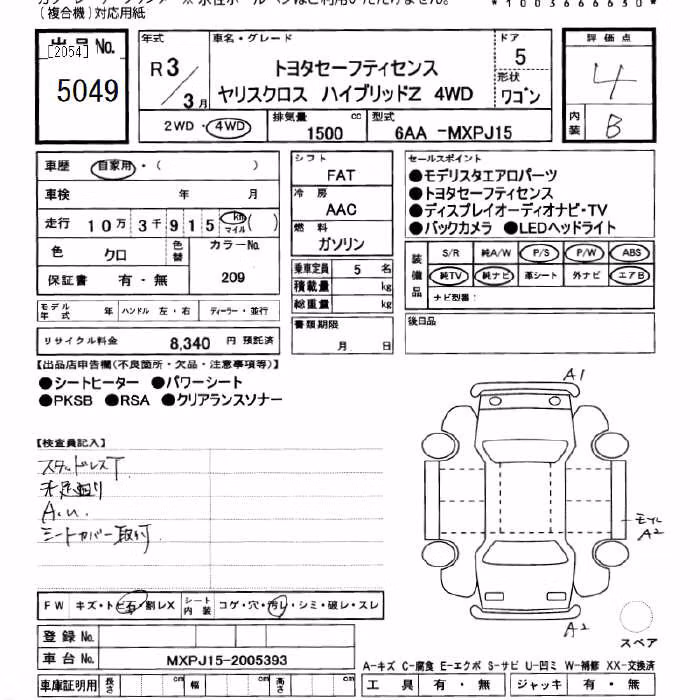 (複合機)対応用紙
出品No.
[2054]
5049
年式
R3/3月
車名・グレード
トヨタセーフティセンス
ヤリスクロス ハイブリッドZ 4WD
ドア
5
形状
ワゴン
評価点
4
内装
B
2WD・4WD
排気量 1500 cc
型式 6AA -MXPJ15
車歴 自家用・( )
車検 年 月
走行 10万3千915 km マイル ( )
色 クロ
色替
カラーNo. 209
保証書 有・無
モデル年式 年
ハンドル 左・右
ディーラー・並行
リサイクル料金 8,340 円 預託済
シフト
FAT
冷房
AAC
燃料
ガソリン
乗車定員 5 名
積載量 kg
総重量 kg
書類期限
月 日
セールスポイント
●モデリスタエアロパーツ
●トヨタセーフティセンス
●ディスプレイオーディオナビ・TV
●バックカメラ ●LEDヘッドライト
装備品
S/R 純A/W P/S P/W ABS
純TV 純ナビ 革シート 外ナビ エアB
ナビ型番:
後日品
【出品店申告欄(不良箇所・欠品・注意事項等)】
●シートヒーター ●パワーシート
●PKSB ●RSA ●クリアランスソナー
【検査員記入】
スタッドレスT
シートカバー取付
A1
モール
A2
A2
スペア
FW キズ・トビ石/割レX
シート内装 コゲ・穴・汚レ・シミ・破レ・スレ
登録No.
車台No. MXPJ15-2005393
車庫証明用 長さ cm 幅 cm 高さ cm
A-キズ C-腐食 E-エクボ S-サビ U-凹ミ W-補修 XX-交換済
工具 有・無 ジャッキ 有・無